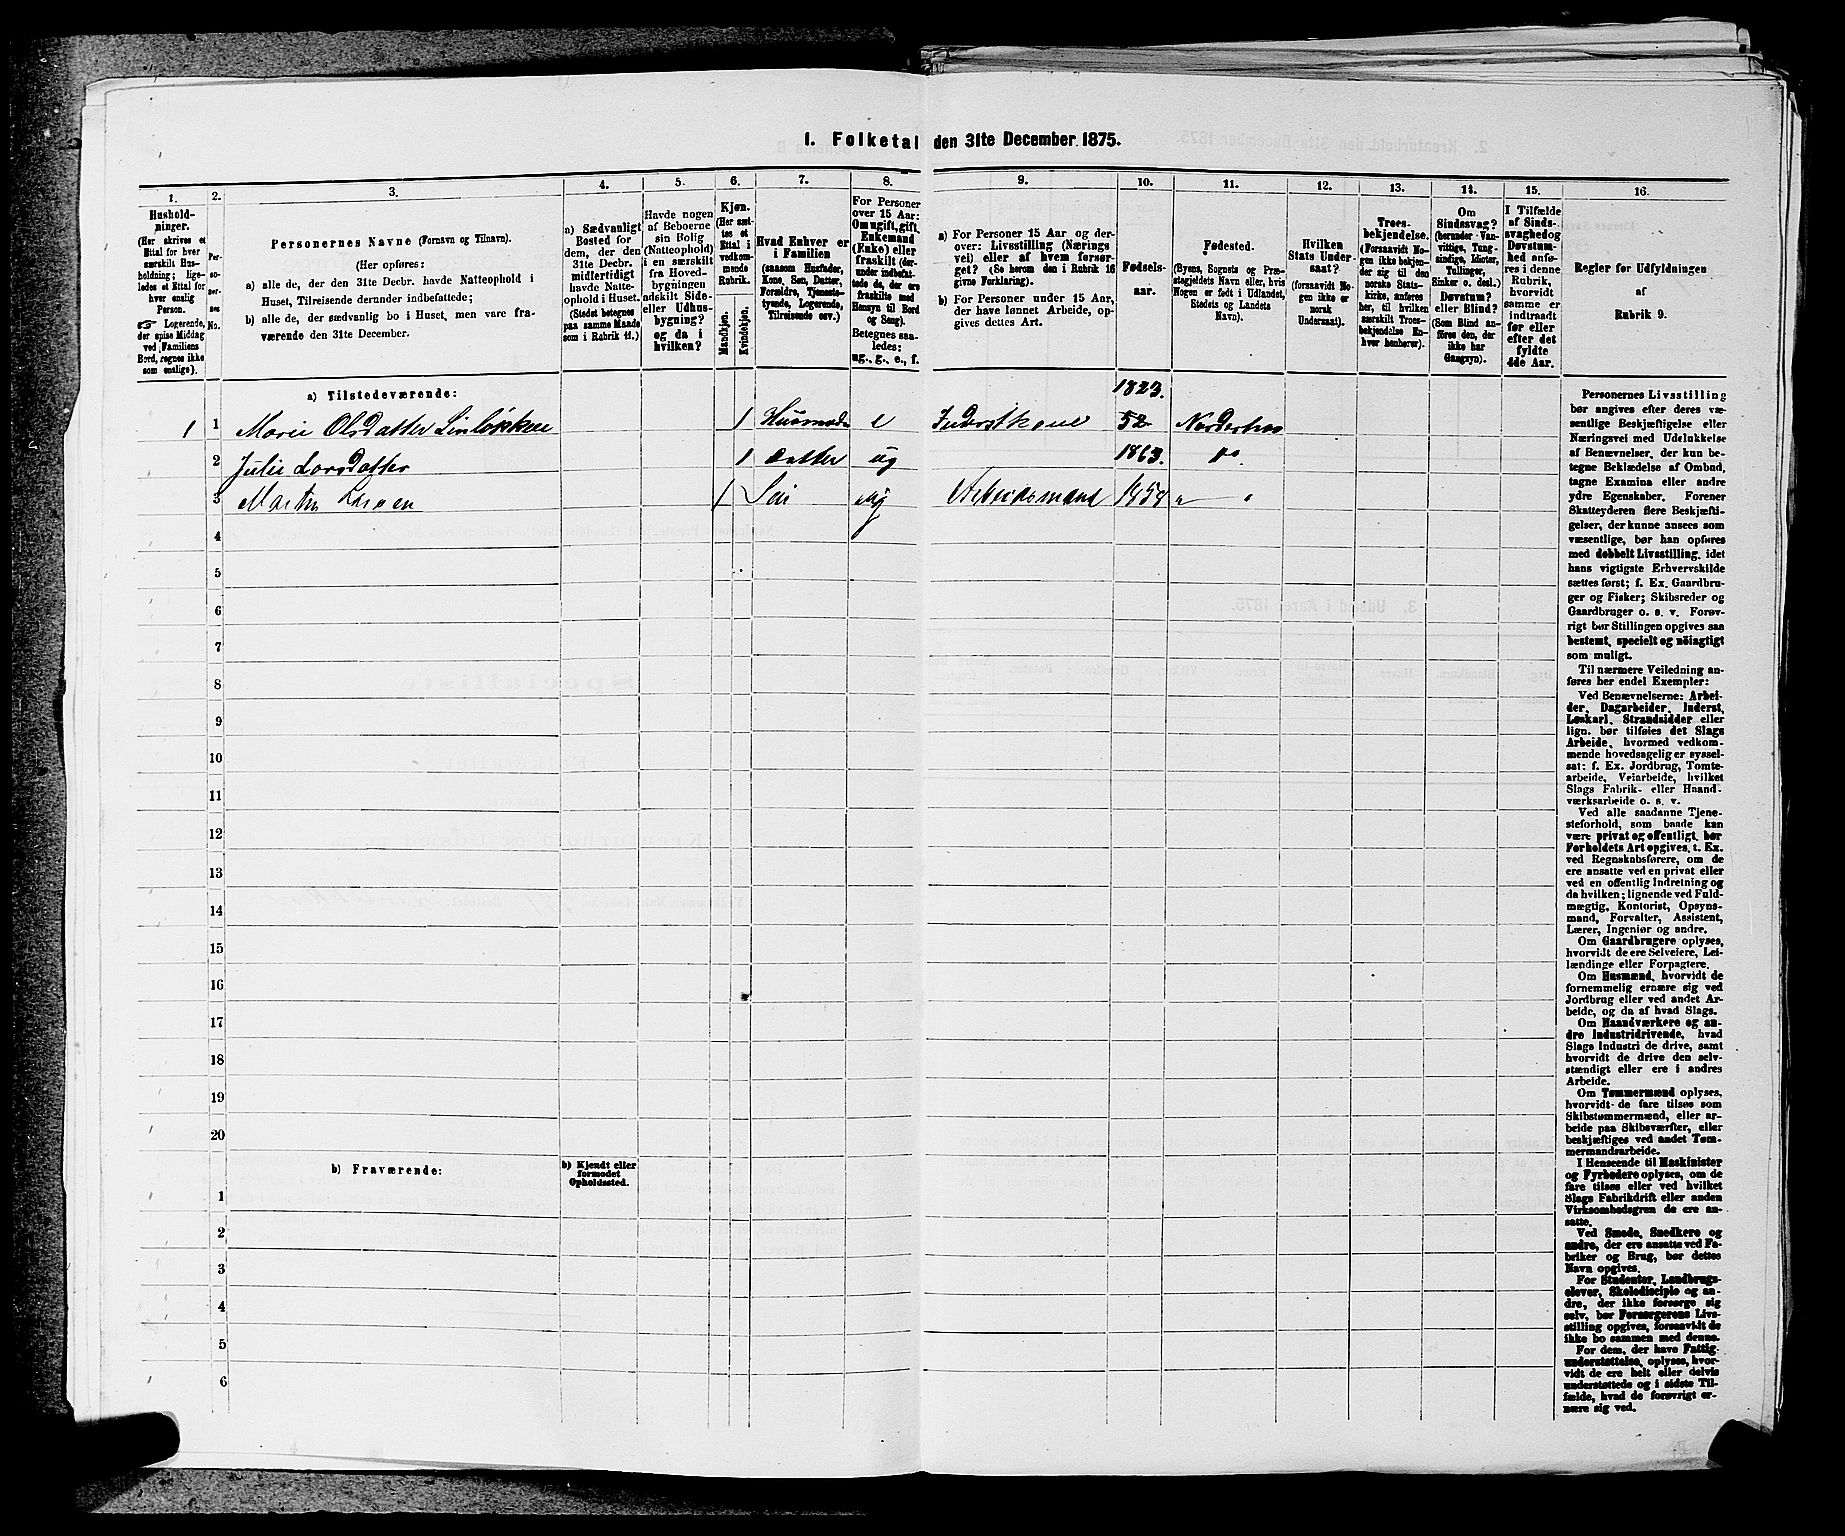 1. Folketal den 31te December 1875.
1.
2.
3.
4.
5.
6.
7.
8.
9.
10.
11.
12.
13.
14.
15.
16.
Hushold-
ninger.
(Her skrives et
Ettal for hver
særskilt Hus-
holdning; lige-
ledes et Ettal for
hver enslig
Person.
Logerende,
der spise Middag
ved Familiens
Bord, regnes ikke
som enslige).
Per-
so-
ner-
nes
No.
Personernes Navne (Fornavn og Tilnavn).
(Her opføres:
a) alle de, der den 31te Decbr. havde Natteophold i
Huset, Tilreisende derunder indbefattede;
b) alle de, der sædvanlig bo i Huset, men vare fra-
værende den 31te December.
a) Sædvanligt
Bosted for
dem, der den
31te Decbr.
midlertidigt
havde Natte-
ophold i Huset.
(Stedet betegnes
paa samme Maade
som i Rubrik 11.)
Havde nogen
af Beboerne
sin Bolig
(Natteophold)
i en særskilt
fra Hoved-
bygningen
adskilt Side-
eller Udhus-
bygning?
og da i
hvilken?
Kjøn.
(Her sæt-
tes et
Ettal i
vedkom-
mende
Rubrik.
Mandkjøn.
Kvindekjøn.
Hvad Enhver er
i Familien
(saasom Husfader,
Kone, Søn, Datter,
Forældre, Tjeneste-
tyende, Logerende,
Tilreisende osv.)
For Personer
over 15 Aar:
Om ugift, gift,
Enkemand
(Enke) eller
fraskilt (der-
under indbefat-
tede de, der ere
fraskilte med
Hensyn til Bord
og Seng).
Betegnes saa-
ledes:
ug., g., e., f.
a) For Personer 15 Aar og der-
over: Livsstilling (Nærings
vei) eller af hvem forsør-
get? (Se herom den i Rubrik 16
givne Forklaring).
b) For Personer under 15 Aar,
der have lønnet Arbeide, op-
gives dettes Art.
Fødsels-
aar.
Fødested.
(Byens, Sognets og Præ-
stegjeldets Navn eller, hvis
Nogen er født i Udlandet,
Stedets og Landets
Navn).
Hvilken
Stats Under-
saat?
(forsaavidt No-
gen ikke er
norsk
Undersaat).
Troes-
bekjendelse.
(Forsaavidt No-
gen ikke bekjen-
der sig til den
norske Stats-
kirke, anføres
her, til hvilken
særskilt Troes-
bekjendelse En-
hver henhører).
Om
Sindssvag?
(herunder Van-
vittige, Tung-
sindige, Idioter,
Tullinger,
Sinker o. desl.)
Døvstum?
eller Blind?
(Som Blind an-
føres den, der
ikke har
Gangsyn).
I Tilfælde
af Sinds-
svaghed og
Døvstum-
hed anfø-
res i denne
Rubrik,
hvorvidt
samme er
indtraadt
før eller
efter det
fyldte
4de Aar.
Regler for Udfyldningen
af
Rubrik 9.
a) Tilstedeværende:
1823.
1 1 Marie Olsdatter Linløkken 1 Husmoder e Inderstkone 52 Norderhov
2 Julie Larsdatter 1 Datter ug 1863. do.
3 Martin Larsen 1 Søn ug Arbeidsmand 1858 " "
4
5
6
7
8
9
10
11
12
13
14
15
16
17
18
19
20
b) Fraværende:
b) Kjendt eller
formodet
Opholdssted.
1
2
3
4
5
6
Personernes Livsstilling
bør angives efter deres væ-
sentlige Beskjæftigelse eller
Næringsvei med Udelukkelse
af Benævnelser, der kun be-
tegne Beklædelse af Ombud,
tagne Examina eller andre
ydre Egenskaber. Forener
Skatteyderen flere Beskjæfti-
gelser, der kunne ansees som
væsentlige, bør han opføres
med dobbelt Livsstilling, idet
hans vigtigste Erhvervskilde
sættes først; f. Ex. Gaardbru-
ger og Fisker; Skibsreder og
Gaardbruger o. s. v. Forøv-
rigt bør Stillingen opgives saa
bestemt, specielt og nöiagtigt
som muligt.
Til nærmere Veiledning an-
føres her endel Exempler:
Ved Benævnelserne: Arbei-
der, Dagarbeider, Inderst,
Løskarl, Strandsidder eller
lign. bør tilføies det Slags
Arbeide, hvormed vedkom-
mende hovedsagelig er syssel-
sat: f. Ex. Jordbrug, Tomte-
arbeide, Veiarbeide, hvilket
Slags Fabrik- eller Haand-
værksarbeide o. s. v.
Ved alle saadanne Tjene-
steforhold, som baade kan
være privat og offentligt, bør
Forholdets Art opgives, t. Ex.
ved Regnskabsførere, om de
ere ansatte ved en privat eller
ved en offentlig Indretning og
da hvilken; lignende ved Fuld-
mægtig, Kontorist, Opsyns-
mand, Forvalter, Assistent,
Lærer, Ingeniør og andre.
Om Gaardbrugere oplyses,
hvorvidt de ere Selveiere, Lei-
lændinge eller Forpagtere.
Om Husmænd, hvorvidt de
fornemmelig ernære sig ved
Jordbrug eller ved andet Ar-
beide, og da af hvad Slags.
Om Haandværkere og an-
dre Industridrivende, hvad
Slags Industri de drive, samt
hvorvidt de drive den selv-
stændigt eller ere i andres
Arbeide.
Om Tømmermænd oplyses,
hvorvidt de fare tilsøs som
Skibstømmermænd, eller ar-
beide paa Skibsværfter, eller
beskjæftiges ved andet Tøm-
mermandsarbeide.
I Henseende til Maskinister
og Fyrbødere oplyses, om de
fare tilsøs eller ved hvilket
Slags Fabrikdrift eller anden
Virksomhedsgren de ere an-
satte.
Ved Smede, Snedkere og
andre, der ere ansatte ved Fa-
briker og Brug, bør dettes
Navn opgives.
For Studenter, Landbrugs-
elever, Skoledisciple og an-
dre, der ikke forsørge sig
selv, bør Forsørgerens Livs-
stilling opgives, forsaavidt de
ikke bo sammen med denne.
For dem, der have Fattig-
understøttelse, oplyses, hvor-
vidt de ere helt eller delvis
understøttede og i sidste Til-
fælde, hvad de forøvrigt er-
nære sig ved.